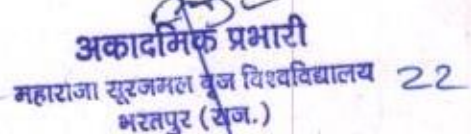 अकादमिक प्रभारी
महाराजा सूरजमल बृज विश्वविद्यालय 22
भरतपुर (राज.)